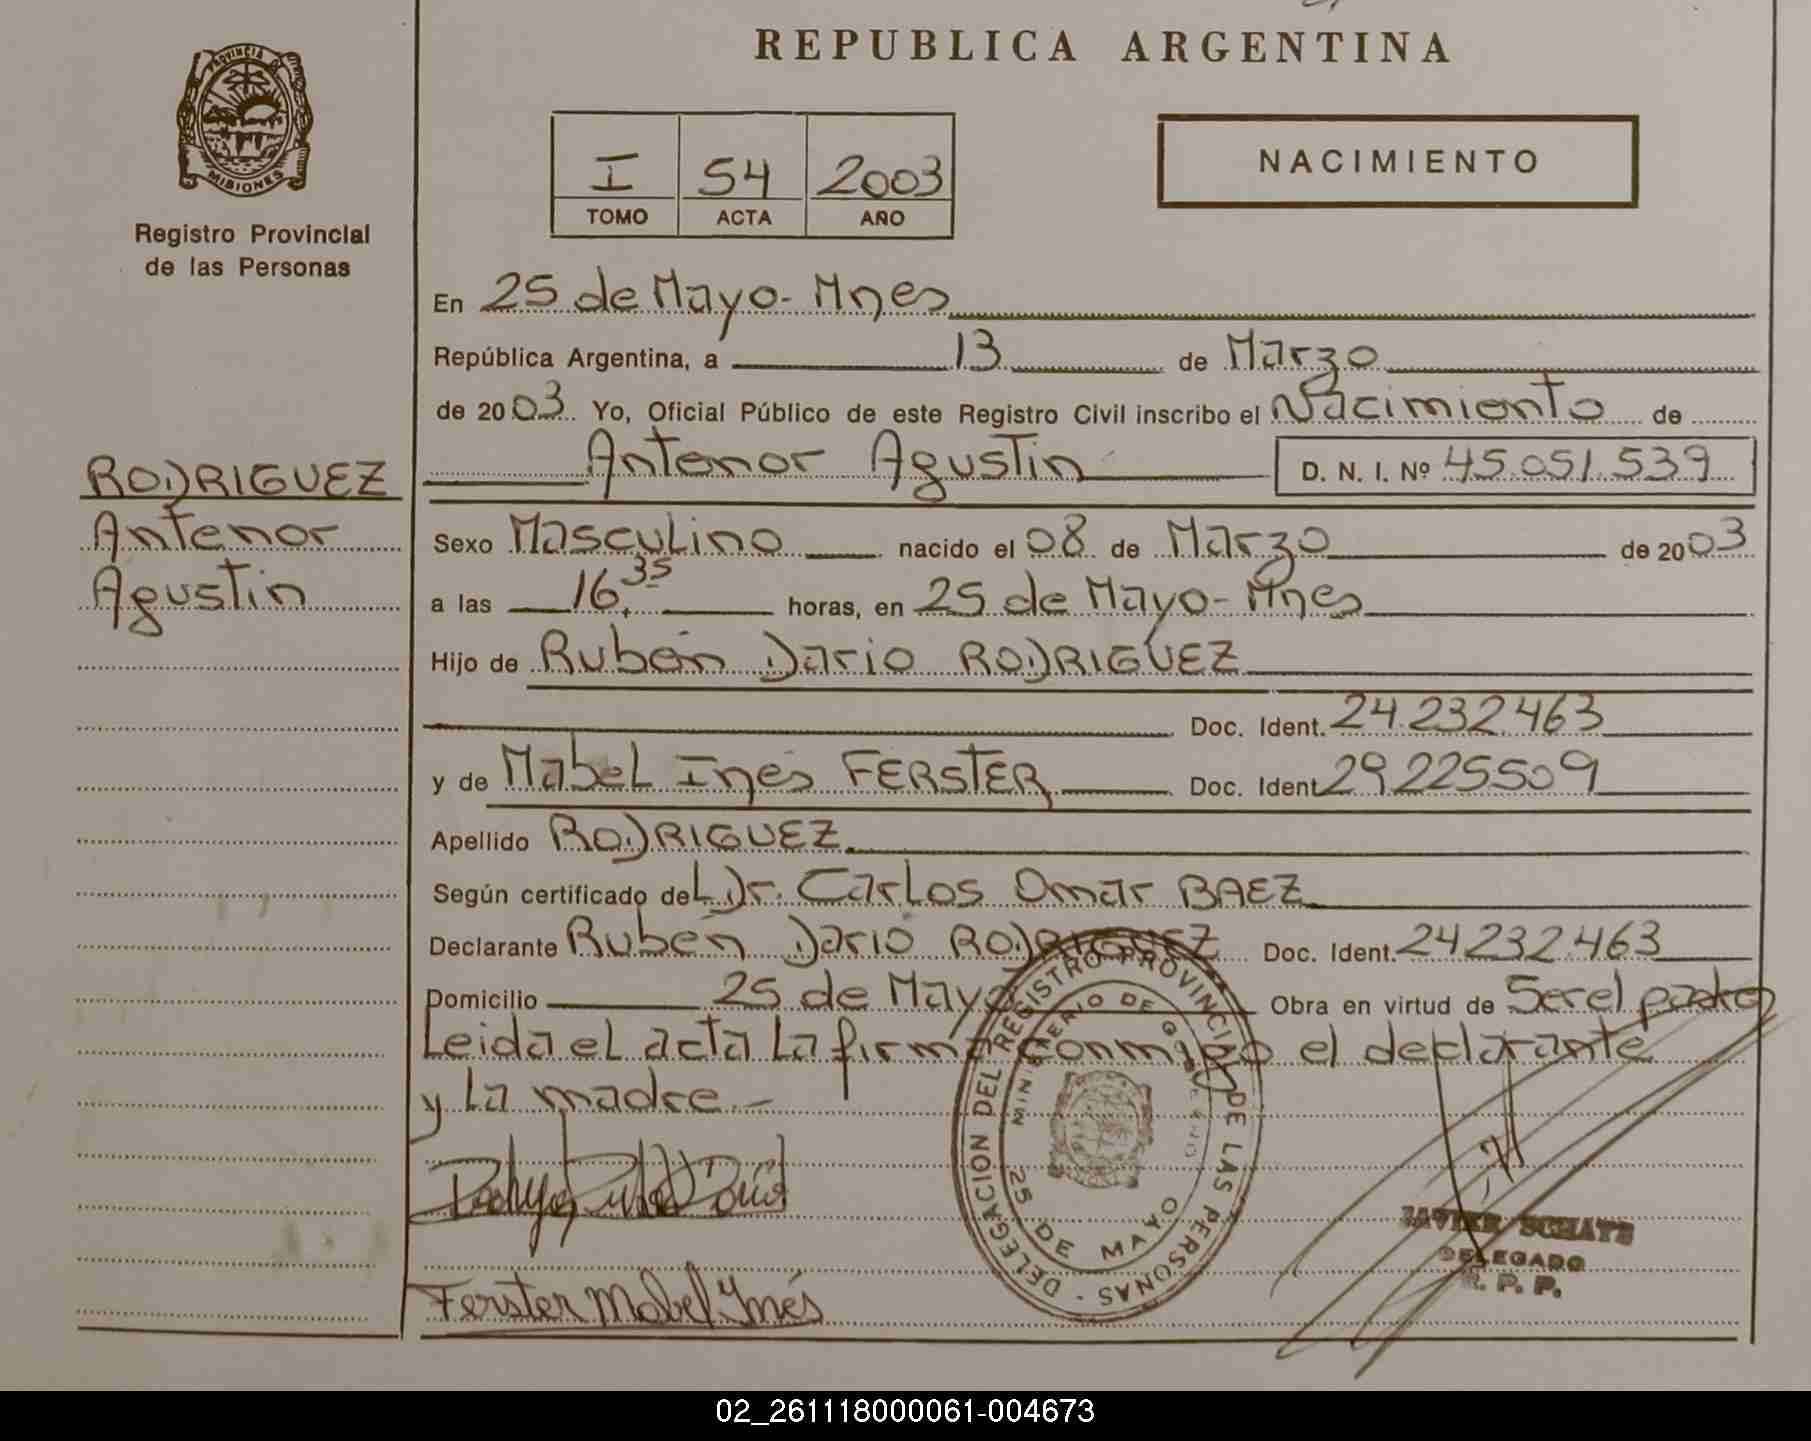 REPUBLICA ARGENTINA
PROVINCIA DE
MISIONES
Registro Provincial
de las Personas
I 54 2003
TOMO ACTA AÑO
NACIMIENTO
En 25 de Mayo - Mnes
República Argentina, a 13 de Marzo
de 2003 Yo, Oficial Público de este Registro Civil inscribo el Nacimiento de
Antenor Agustin D. N. I. Nº 45.051.539
RODRIGUEZ
Antenor
Agustin
Sexo Masculino nacido el 08 de Marzo de 2003
a las 16,35 horas, en 25 de Mayo - Mnes
Hijo de Rubén Dario RODRIGUEZ
Doc. Ident. 24.232.463
y de Mabel Inés FERSTER Doc. Ident 29.225509
Apellido RODRIGUEZ
Según certificado del Dr. Carlos Omar BAEZ
Declarante Rubén Dario RODRIGUEZ Doc. Ident. 24232.463
Domicilio 25 de Mayo Obra en virtud de Ser el padre
Leida el acta la firma conmigo el declarante
y la madre -
DELEGACION DEL REGISTRO PROVINCIAL DE LAS PERSONAS -
MINISTERIO DE GOBIERNO
25 DE MAYO
JAVIER
DELEGADO
R. P. P.
Ferster Mabel Ynés
02_261118000061-004673